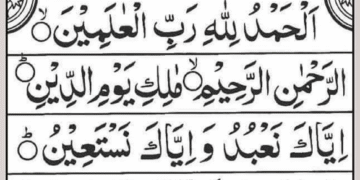 اَلْحَمْدُ لِلّٰهِ رَبِّ الْعٰلَمِيْنَ ۙ
الرَّحْمٰنِ الرَّحِيْمِ ۙ مٰلِكِ يَوْمِ الدِّيْنِ ؕ
اِيَّاكَ نَعْبُدُ وَ اِيَّاكَ نَسْتَعِيْنُ ؕ